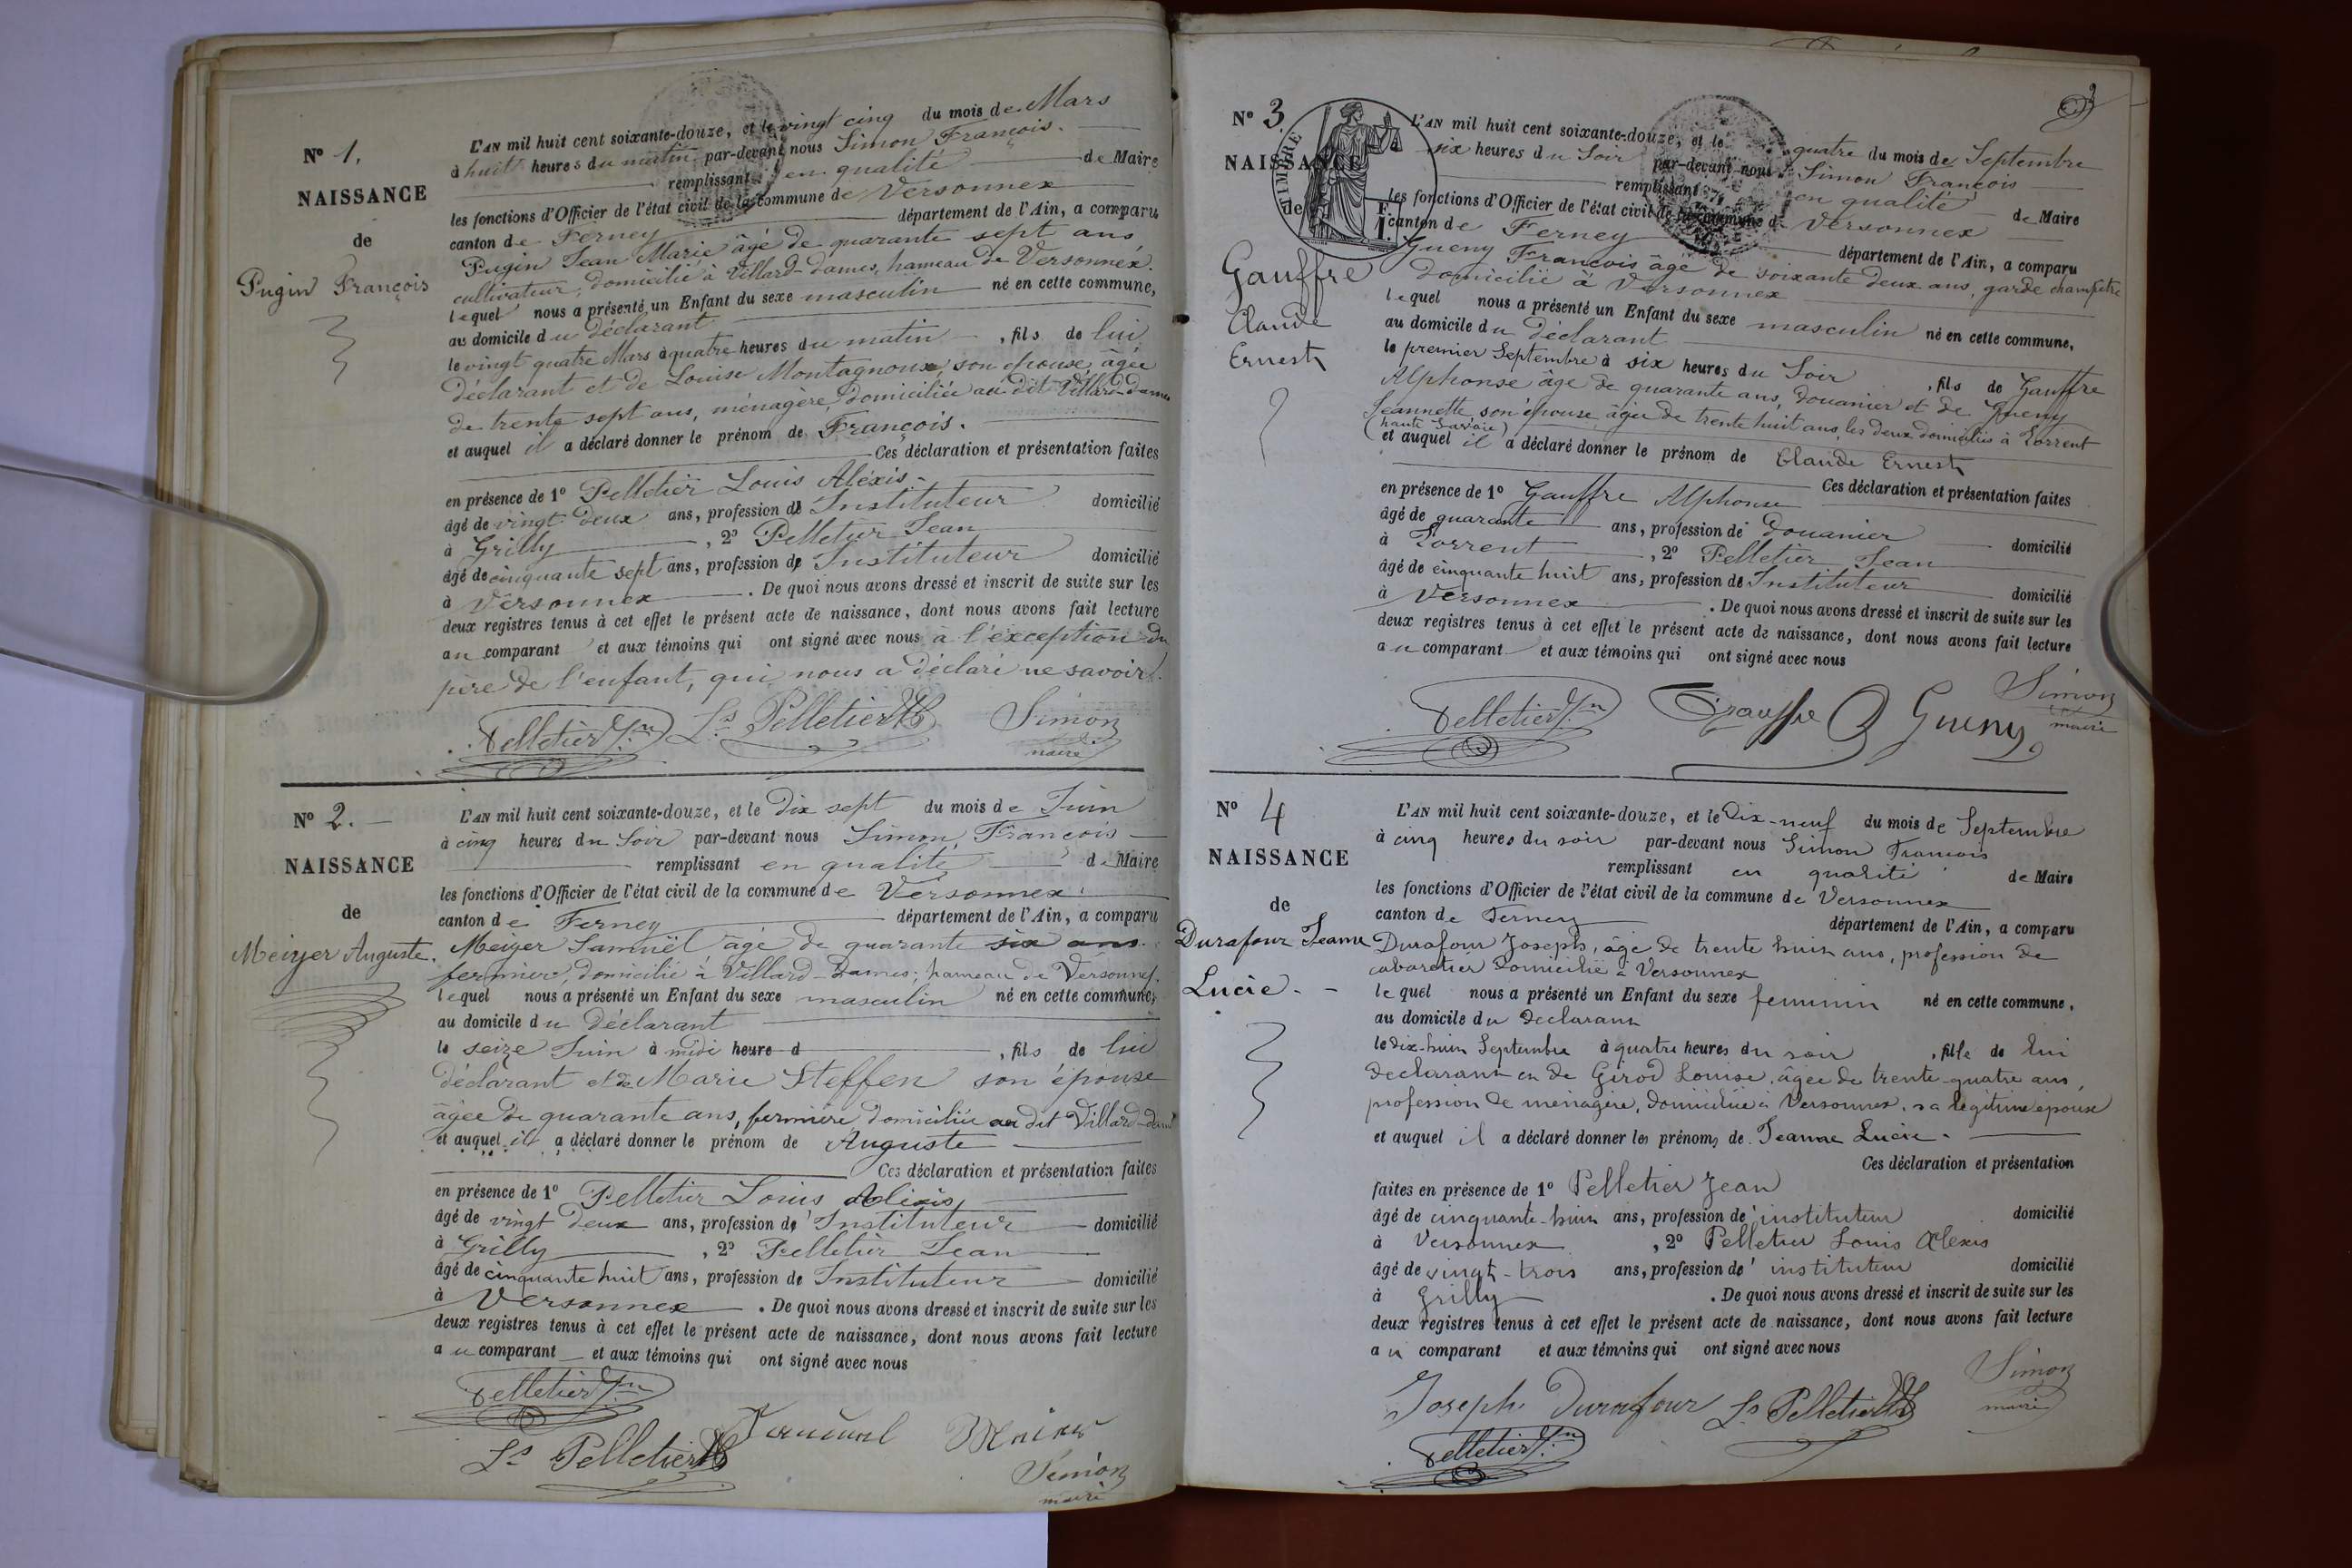 N° 1.
NAISSANCE
de
Pugin François
L'AN mil huit cent soixante-douze, et le vingt cinq du mois de Mars
à huit heures du matin par-devant nous Simon François.
remplissant en qualité de Maire
les fonctions d'Officier de l'état civil de la commune de Versonnex
canton de Ferney département de l'Ain, a comparu
Pugin Jean Marie âgé de quarante sept ans
cultivateur, domicilié à Villard-dames, hameau de Versonnex.
lequel nous a présenté un Enfant du sexe masculin né en cette commune,
au domicile du déclarant
le vingt quatre Mars à quatre heures du matin, fils de lui
déclarant et de Louise Montagnoux, son épouse, âgée
de trente sept ans, ménagère, domiciliée au dit Villard-dames
et auquel il a déclaré donner le prénom de François.
Ces déclaration et présentation faites
en présence de 1° Pelletier Louis Aléxis
âgé de vingt deux ans, profession de Instituteur domicilié
à Grilly, 2° Pelletier Jean
âgé de cinquante sept ans, profession de Instituteur domicilié
à Versonnex. De quoi nous avons dressé et inscrit de suite sur les
deux registres tenus à cet effet le présent acte de naissance, dont nous avons fait lecture
au comparant et aux témoins qui ont signé avec nous à l'exception du
père de l'enfant, qui nous a déclaré ne savoir.
Pelletier Jn Ls Pelletier Simon
maire
N° 2.
NAISSANCE
de
Meiyer Auguste.
L'AN mil huit cent soixante-douze, et le dix sept du mois de Juin
à cinq heures du Soir par-devant nous Simon François
remplissant en qualité de Maire
les fonctions d'Officier de l'état civil de la commune de Versonnex
canton de Ferney département de l'Ain, a comparu
Meiyer Samuël âgé de quarante six ans.
fermier, domicilié à Villard-Dames, hameau de Versonnex.
lequel nous a présenté un Enfant du sexe masculin né en cette commune,
au domicile du déclarant
le seize Juin à midi heure d, fils de lui
déclarant et de Marie Steffen son épouse
âgée de quarante ans, fermière, domiciliée au dit Villard-dames
et auquel il a déclaré donner le prénom de Auguste
Ces déclaration et présentation faites
en présence de 1° Pelletier Louis Alexis
âgé de vingt deux ans, profession de Instituteur domicilié
à Grilly, 2° Pelletier Jean
âgé de cinquante huit ans, profession de Instituteur domicilié
à Versonnex. De quoi nous avons dressé et inscrit de suite sur les
deux registres tenus à cet effet le présent acte de naissance, dont nous avons fait lecture
au comparant et aux témoins qui ont signé avec nous
Pelletier Jn
Ls Pelletier
Simon
maire
3
N° 3.
NAISSANCE
de
Gauffre
Claude
Ernest
TIMBRE
L'AN mil huit cent soixante-douze, et le quatre du mois de Septembre
six heures du Soir par-devant nous Simon François
remplissant en qualité de Maire
les fonctions d'Officier de l'état civil de la commune de Versonnex
canton de Ferney département de l'Ain, a comparu
Gueny François âgé de soixante deux ans, garde champêtre
domicilié à Versonnex
lequel nous a présenté un Enfant du sexe masculin né en cette commune,
au domicile du déclarant
le premier Septembre à six heures du Soir, fils de Gauffre
Alphonse âgé de quarante ans, douanier et de Gueny
Jeannette, son épouse, âgée de trente huit ans, les deux domiciliés à Lorrent
(haute Savoie)
et auquel il a déclaré donner le prénom de Claude Ernest
Ces déclaration et présentation faites
en présence de 1° Gauffre Alphonse
âgé de quarante ans, profession de douanier domicilié
à Lorrent, 2° Pelletier Jean
âgé de cinquante huit ans, profession de Instituteur domicilié
à Versonnex. De quoi nous avons dressé et inscrit de suite sur les
deux registres tenus à cet effet le présent acte de naissance, dont nous avons fait lecture
au comparant et aux témoins qui ont signé avec nous
Pelletier Jn Gauffre Gueny Simon
maire
N° 4
NAISSANCE
de
Durafour Jeanne
Lucie.
L'AN mil huit cent soixante-douze, et le Dix-neuf du mois de Septembre
à cinq heures du soir par-devant nous Simon François
remplissant en qualité de Maire
les fonctions d'Officier de l'état civil de la commune de Versonnex
canton de Ferney département de l'Ain, a comparu
Durafour Joseph, âgé de trente huit ans, profession de
cabaretier domicilié à Versonnex
lequel nous a présenté un Enfant du sexe feminin né en cette commune,
au domicile du declarant
le dix-huit Septembre à quatre heures du soir, fille de lui
declarant et de Girod Louise, âgée de trente-quatre ans,
profession de menagère, domiciliée à Versonnex, sa légitime épouse
et auquel il a déclaré donner les prénoms de Jeanne Lucie.
Ces déclaration et présentation
faites en présence de 1° Pelletier Jean
âgé de cinquante-huit ans, profession de instituteur domicilié
à Versonnex, 2° Pelletier Louis Alexis
âgé de vingt-trois ans, profession de instituteur domicilié
à Grilly. De quoi nous avons dressé et inscrit de suite sur les
deux registres tenus à cet effet le présent acte de naissance, dont nous avons fait lecture
au comparant et aux témoins qui ont signé avec nous
Joseph Durafour Ls Pelletier Simon
maire
Pelletier Jn